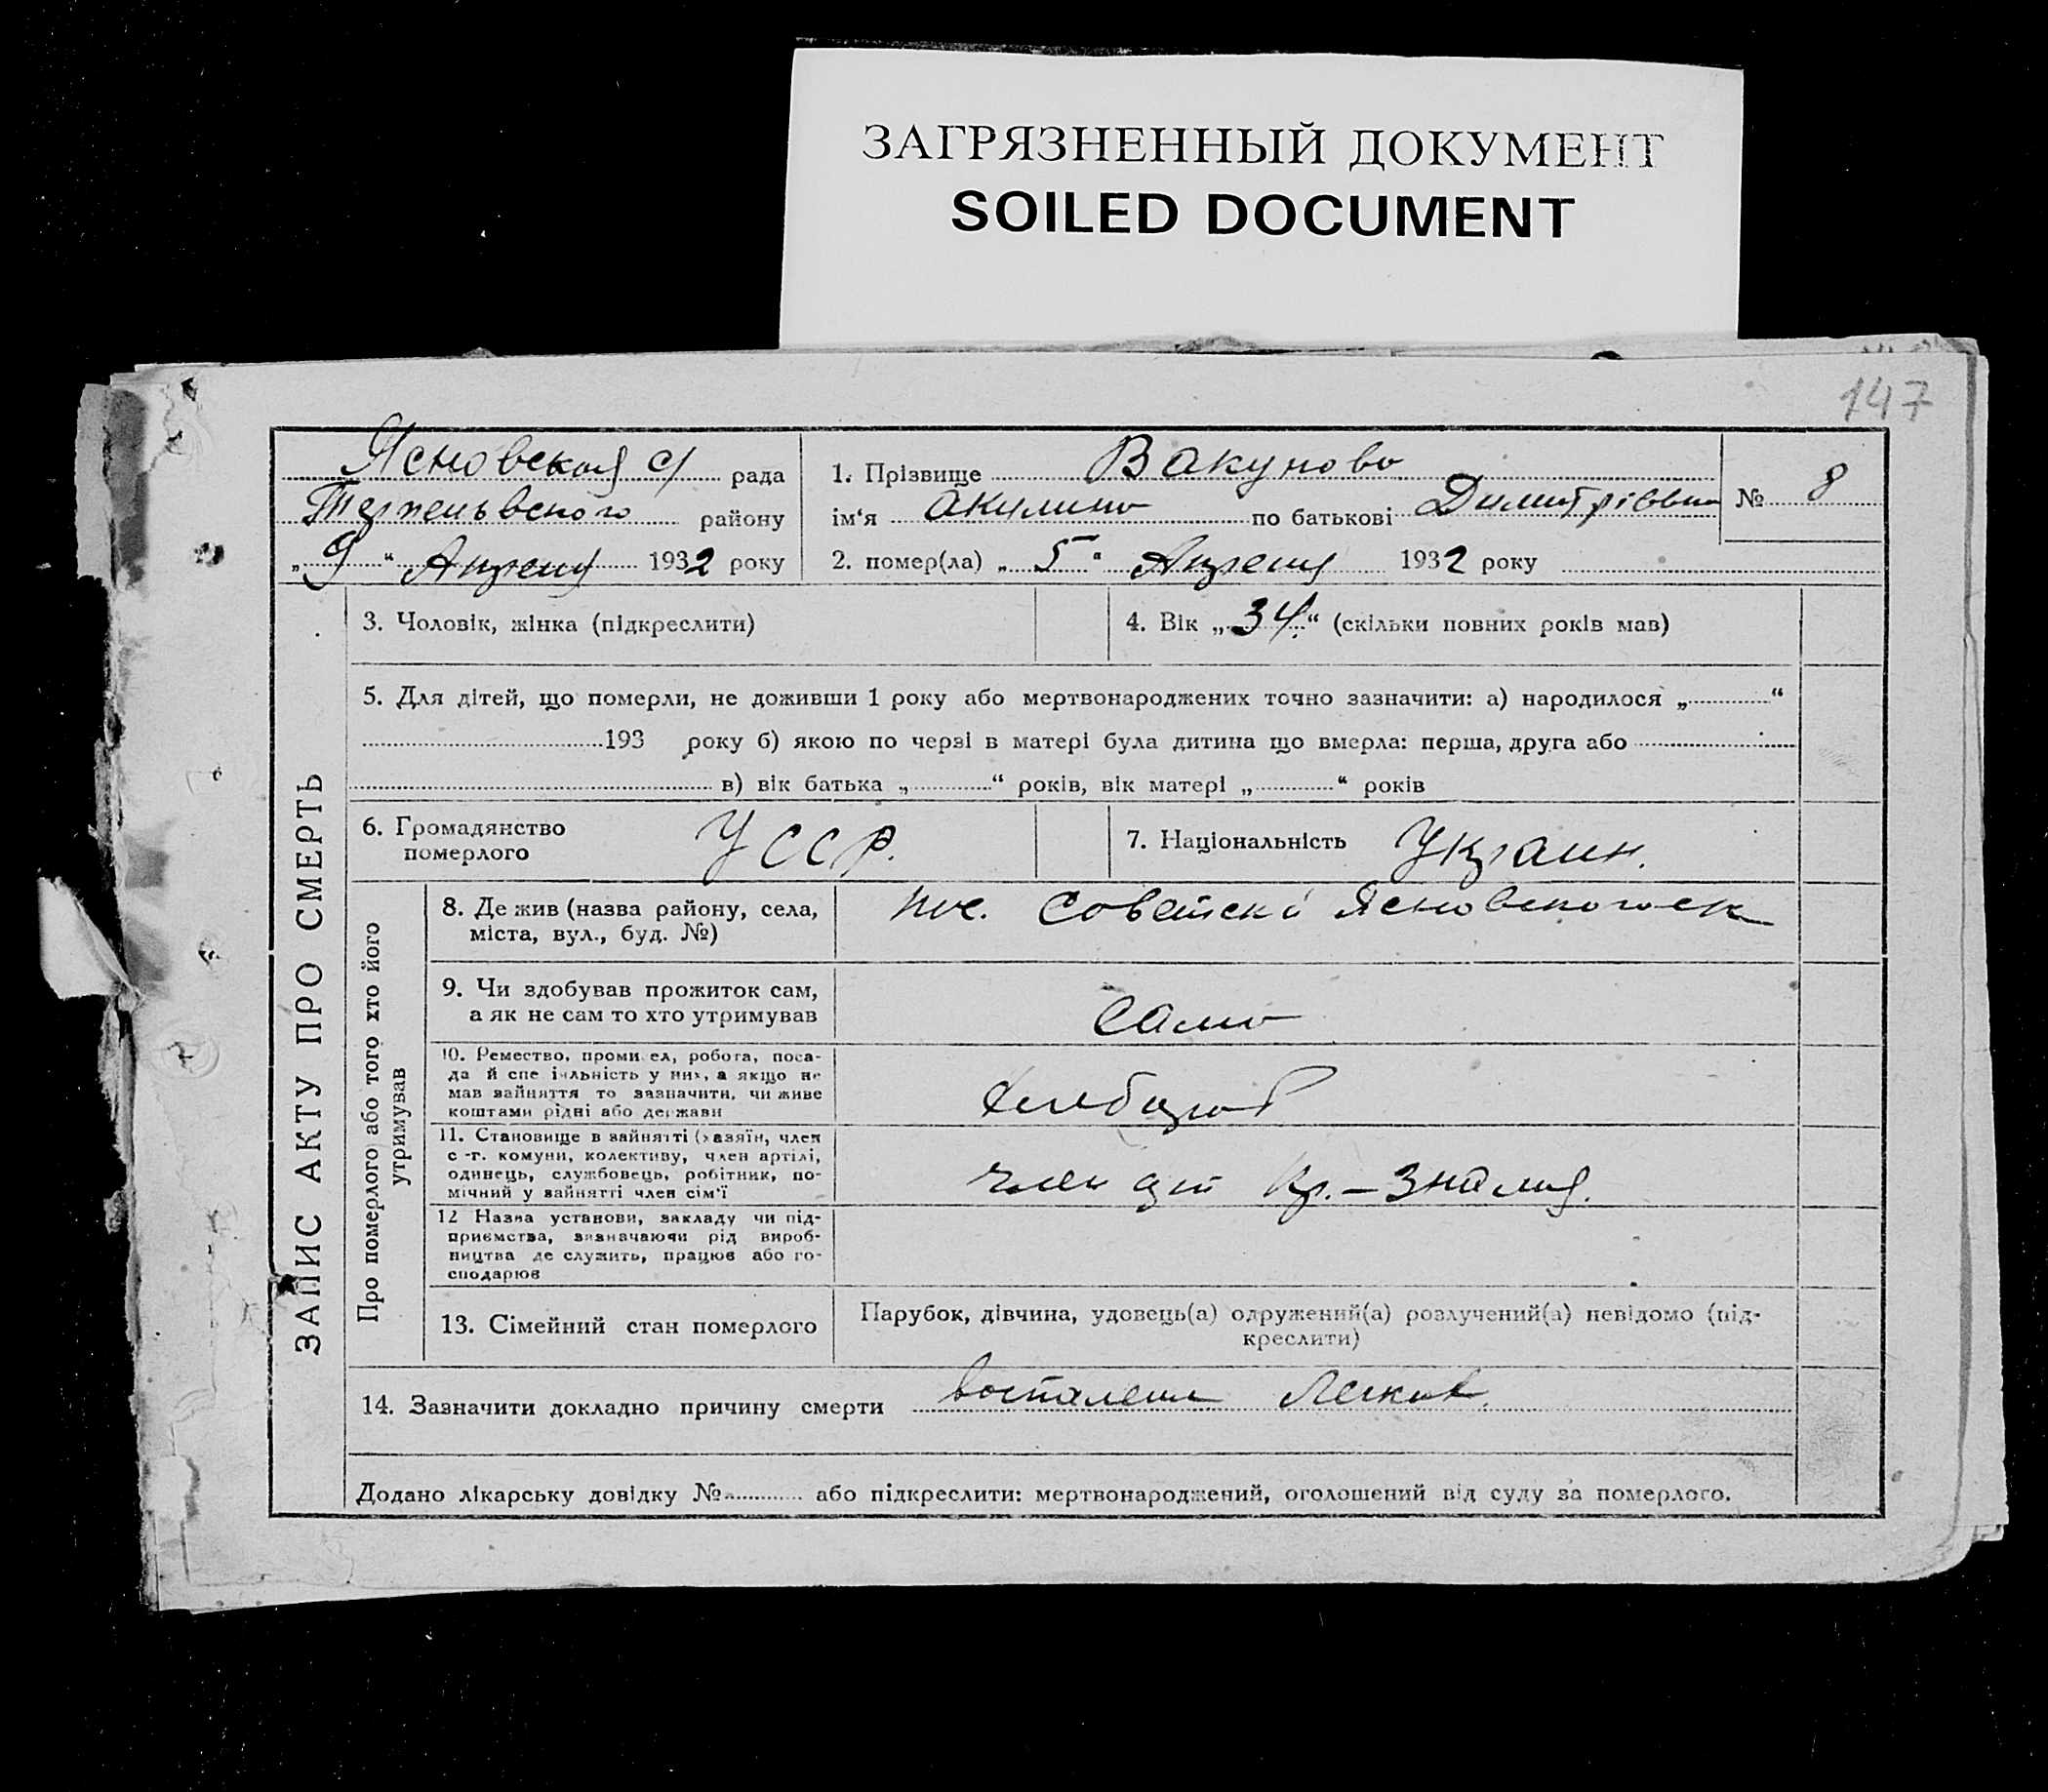 ЗАГРЯЗНЕННЫЙ ДОКУМЕНТ
SOILED DOCUMENT
147
Ясновская с/ рада
району
„9“ Апреля 1932 року
1. Прізвище Вакунова
ім‘я Акулина по батькові Димитріевн
2. помер(ла) „5“ Апреля 1932 року
№ 8
ЗАПИС АКТУ ПРО СМЕРТЬ
3. Чоловік, жінка (підкреслити)
4. Вік „34“ (скільки повних років мав)
5. Для дітей, що померли, не доживши 1 року або мертвонароджених точно зазначити: а) народилося „ “
193 року б) якою по черзі в матері була дитина що вмерла: перша, друга або
в) вік батька „ “ років, вік матері „ “ років
6. Громадянство
померлого
УССР.
7. Національність Украин.
Про померлого або того хто його
утримував
8. Де жив (назва району, села,
міста, вул., буд. №)
пос. Советский Ясновского
9. Чи здобував прожиток сам,
а як не сам то хто утримував
сама
10. Ремество, промисел, робота, поса-
да й спеціяльність у них, а якщо не
мав зайняття то зазначити, чи живе
коштами рідні або держави
хлебороб
11. Становище в зайнятті (хазяїн, член
с-г. комуни, колективу, член артілі,
одинець, службовець, робітник, по-
мічний у зайнятті член сім‘ї
член арт Кр.-Знамя.
12 Назва установи, закладу чи під-
приємства, визначаючи рід вироб-
ництва де служить, працює або го-
сподарює
13. Сімейний стан померлого
Парубок, дівчина, удовець(а) одружений(а) розлучений(а) невідомо (під-
креслити)
14. Зазначити докладно причину смерти воспалени Легких.
Додано лікарську довідку № або підкреслити: мертвонароджений, оголошений від суду за померлого.